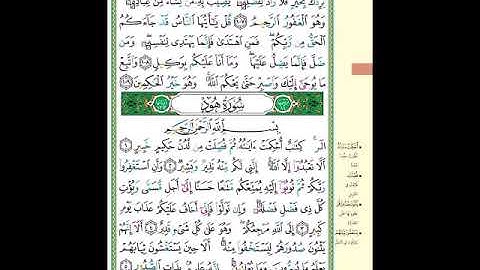 يُرِدْكَ بِخَيْرٍ فَلَا رَآدَّ لِفَضْلِهِۦ يُصِيبُ بِهِۦ مَن يَشَآءُ مِنْ عِبَادِهِۦ
وَهُوَ ٱلْغَفُورُ ٱلرَّحِيمُ ١٠٧ قُلْ يَٰٓأَيُّهَا ٱلنَّاسُ قَدْ جَآءَكُمُ
ٱلْحَقُّ مِن رَّبِّكُمْ فَمَنِ ٱهْتَدَىٰ فَإِنَّمَا يَهْتَدِى لِنَفْسِهِۦ وَمَن
ضَلَّ فَإِنَّمَا يَضِلُّ عَلَيْهَا وَمَآ أَنَا۠ عَلَيْكُم بِوَكِيلٍ ١٠٨ وَٱتَّبِعْ
مَا يُوحَىٰٓ إِلَيْكَ وَٱصْبِرْ حَتَّىٰ يَحْكُمَ ٱللَّهُ وَهُوَ خَيْرُ ٱلْحَٰكِمِينَ ١٠٩
سُورَةُ هُودٍ
بِسْمِ ٱللَّهِ ٱلرَّحْمَٰنِ ٱلرَّحِيمِ
الٓر كِتَٰبٌ أُحْكِمَتْ ءَايَٰتُهُۥ ثُمَّ فُصِّلَتْ مِن لَّدُنْ حَكِيمٍ خَبِيرٍ ١
أَلَّا تَعْبُدُوٓا۟ إِلَّا ٱللَّهَ إِنَّنِى لَكُم مِّنْهُ نَذِيرٌ وَبَشِيرٌ ٢ وَأَنِ ٱسْتَغْفِرُوا۟
رَبَّكُمْ ثُمَّ تُوبُوٓا۟ إِلَيْهِ يُمَتِّعْكُم مَّتَٰعًا حَسَنًا إِلَىٰٓ أَجَلٍ مُّسَمًّى وَيُؤْتِ
كُلَّ ذِى فَضْلٍ فَضْلَهُۥ وَإِن تَوَلَّوْا۟ فَإِنِّىٓ أَخَافُ عَلَيْكُمْ عَذَابَ يَوْمٍ
كَبِيرٍ ٣ إِلَى ٱللَّهِ مَرْجِعُكُمْ وَهُوَ عَلَىٰ كُلِّ شَىْءٍ قَدِيرٌ ٤ أَلَآ إِنَّهُمْ
يَثْنُونَ صُدُورَهُمْ لِيَسْتَخْفُوا۟ مِنْهُ أَلَا حِينَ يَسْتَغْشُونَ ثِيَابَهُمْ
يَعْلَمُ مَا يُسِرُّونَ وَمَا يُعْلِنُونَ إِنَّهُۥ عَلِيمٌۢ بِذَاتِ ٱلصُّدُورِ ٥